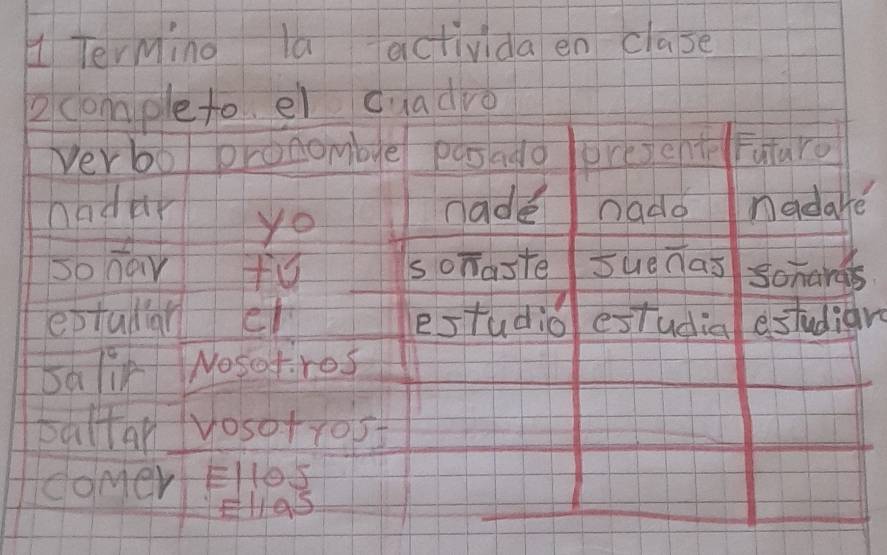 1 Termino la activida en clase
2 completo el cuadro
verbo pronombre pasado presente Futuro
nadar yo nadé nado nadaré
soñar tú soñaste sueñas soñarás
estudiar el estudió estudia estudiara
salir Nosotros
saltar vosotros
comer Ellos
Ellas